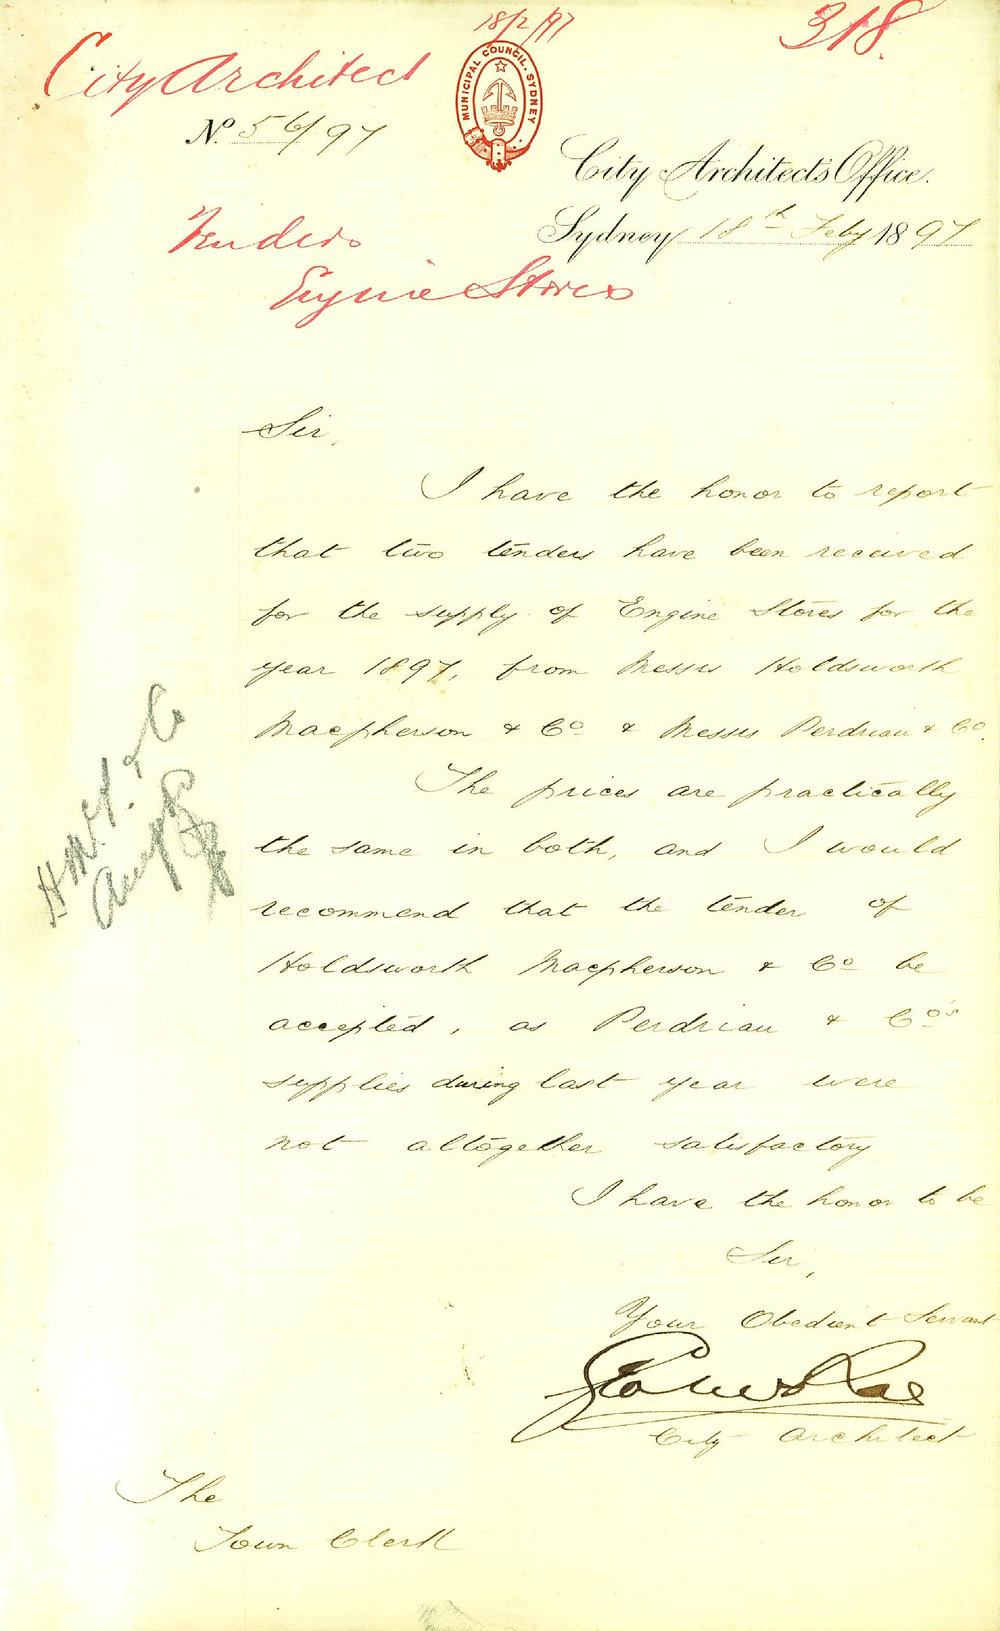 18/2/97
318.
City Architect
MUNICIPAL COUNCIL. SYDNEY
No. 56/97
City Architect's Office.
Sydney 18th Feby 1897
Tenders
Engine Stores
Sir,
I have the honor to report
that two tenders have been received
for the supply of Engine Stores for the
year 1897, from Messrs Holdsworth
Macpherson & Co. & Messrs Perdriau & Co.
The prices are practically
the same in both, and I would
recommend that the tender of
Holdsworth Macpherson & Co be
accepted, as Perdriau & Co's
supplies during last year were
not altogether satisfactory
I have the honor to be
Sir,
Your Obedient Servant
Geo McRae
City Architect
The
Town Clerk
H McP. & Co